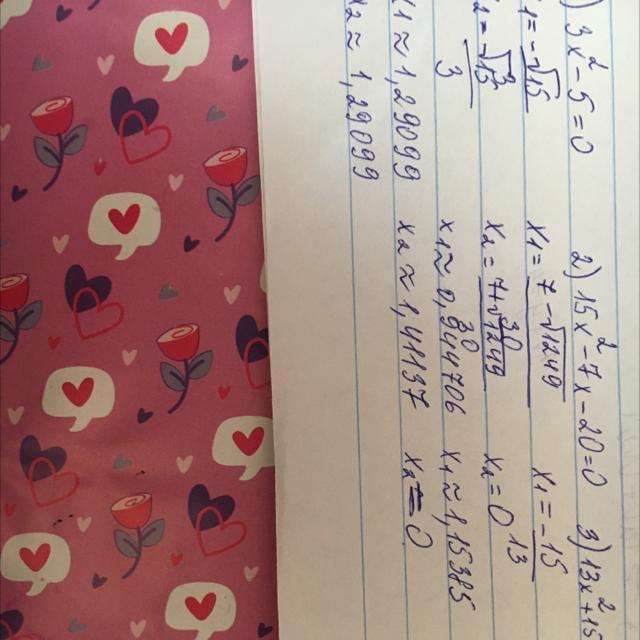 ) 3x² - 5 = 0
x1 = -√15
3
x2 = -√15
x1 ≈ 1,29099
x2 ≈ 1,29099
2) 15x² - 7x - 20 = 0
x1 = 7 - √1249
30
x2 = 7 + √1249
30
x1 ≈ 0,844706
x2 ≈ 1,41197
3) 13x² + 15
x1 = -15
13
x2 = 0
x1 ≈ 1,15385
x2 = 0